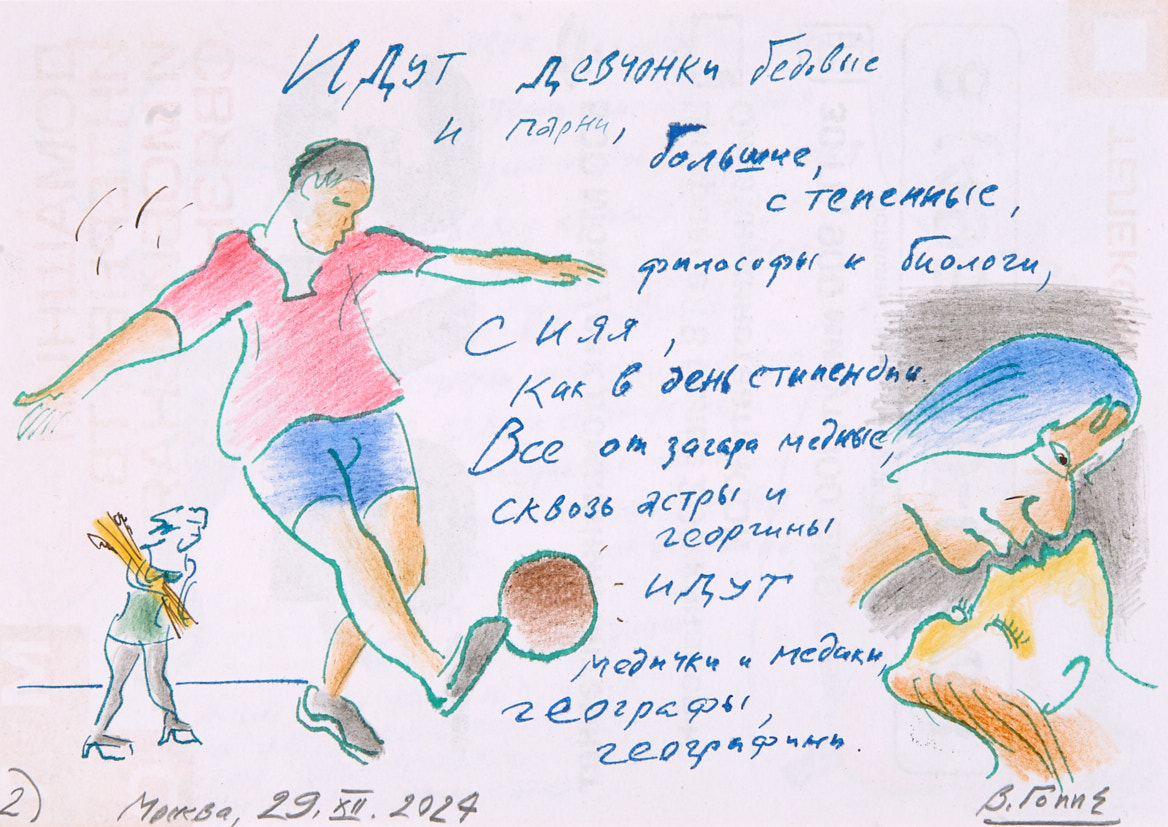 Идут девчонки бедовые
и парни,
большие,
степенные,
философы и биологи,
Сияя,
как в день стипендии.
Все от загара медные,
сквозь астры и
георгины
идут
медички и медики,
географы,
географини.
2) Москва, 29.XII.2024
В.Гоппе